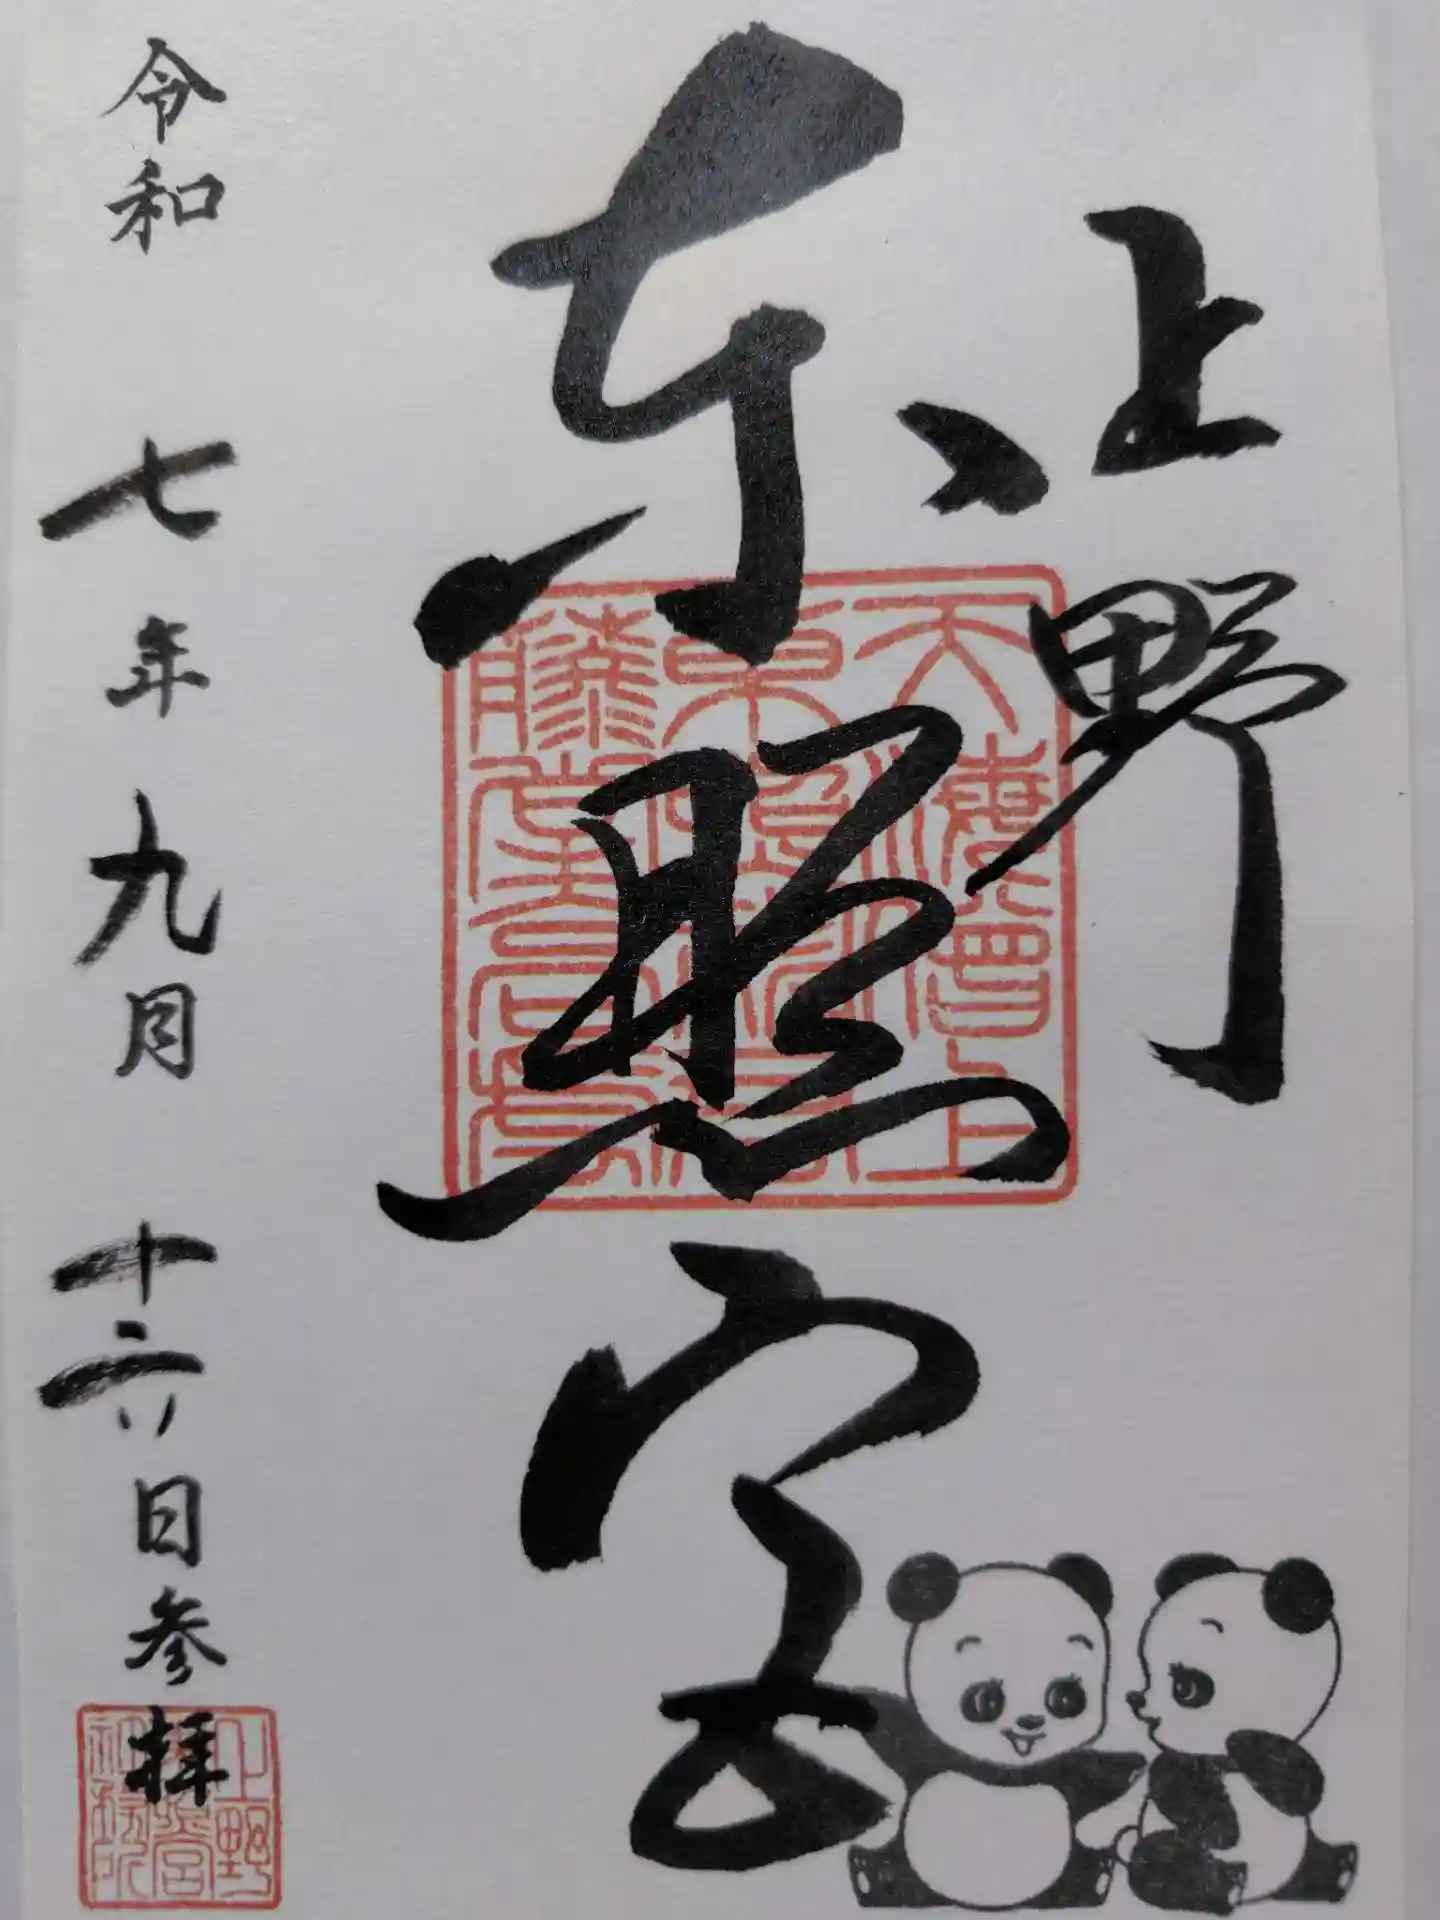 上野
東照宮
令和七年九月十六日参拝
上野
東照宮
社務所